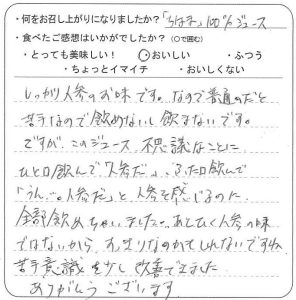 ・何をお召し上がりになりましたか?「ちはま」100%ジュース
・食べたご感想はいかがでしたか?(○で囲む)
・とっても美味しい! ・おいしい ・ふつう
・ちょっとイマイチ ・おいしくない
しっかり人参のお味です。なので普通のだと
苦手なので飲めないし飲まないです。
ですが、このジュース 不思議なことに
ひと口飲んで「人参だ」、ふた口飲んで
「うん。人参だ」と人参を感じるのに
全部飲めちゃいました。あとひく人参の味
ではないから、すっきりなのかもしれないですね
苦手意識を少し改善できました
ありがとうございます